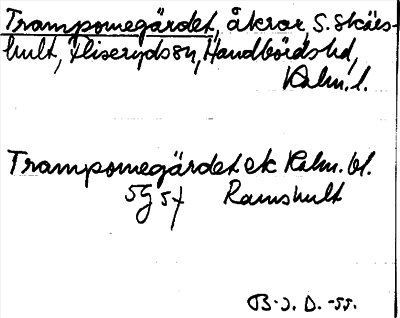 Trampomegärdet, åkrar, S. Skäes-
hult, Fliseryds sn, Handbörds hd,
Kalm. l.
Trampomegärdet ek Kalm. bl.
5g 5f Ramshult
B.J. D. -55.